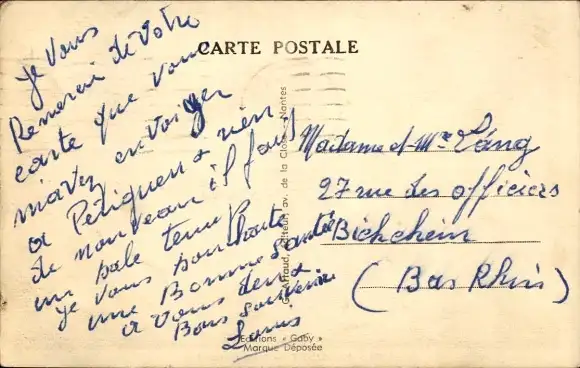 CARTE POSTALE
je vous
Remerci de votre
carte que vous
m'avez envoiyer
a Périguen + rien
de nouveau il fait
un sale temp
je vous souhaite
une Bonne Santée
a vous deux
Bons souvenir
Louis
Madame et Mr Lang
27 rue des officiers
Bichheim
(Bas Rhin)
G. Artaud, Éditeur, av. de la Close, Nantes
Éditions « Gaby »
Marque Déposée